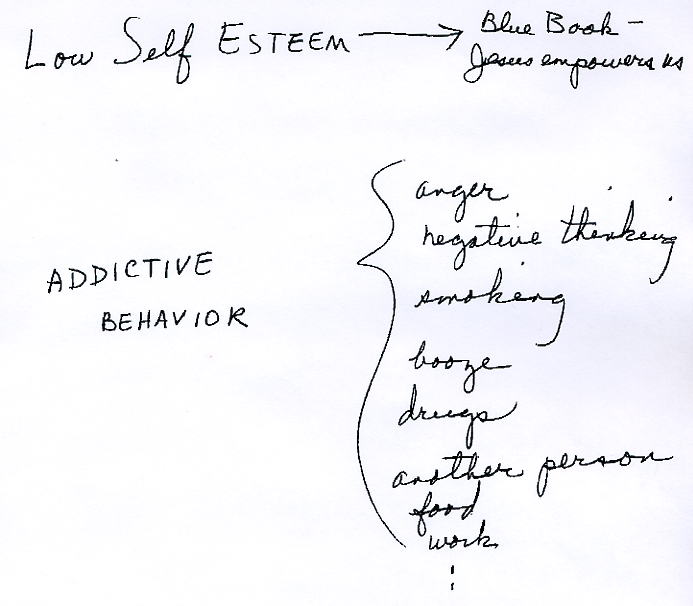 Low Self ESTEEM → Blue Book –
Jesus empowers us
ADDICTIVE
BEHAVIOR
anger
negative thinking
smoking
booze
drugs
another person
food
work
⋮